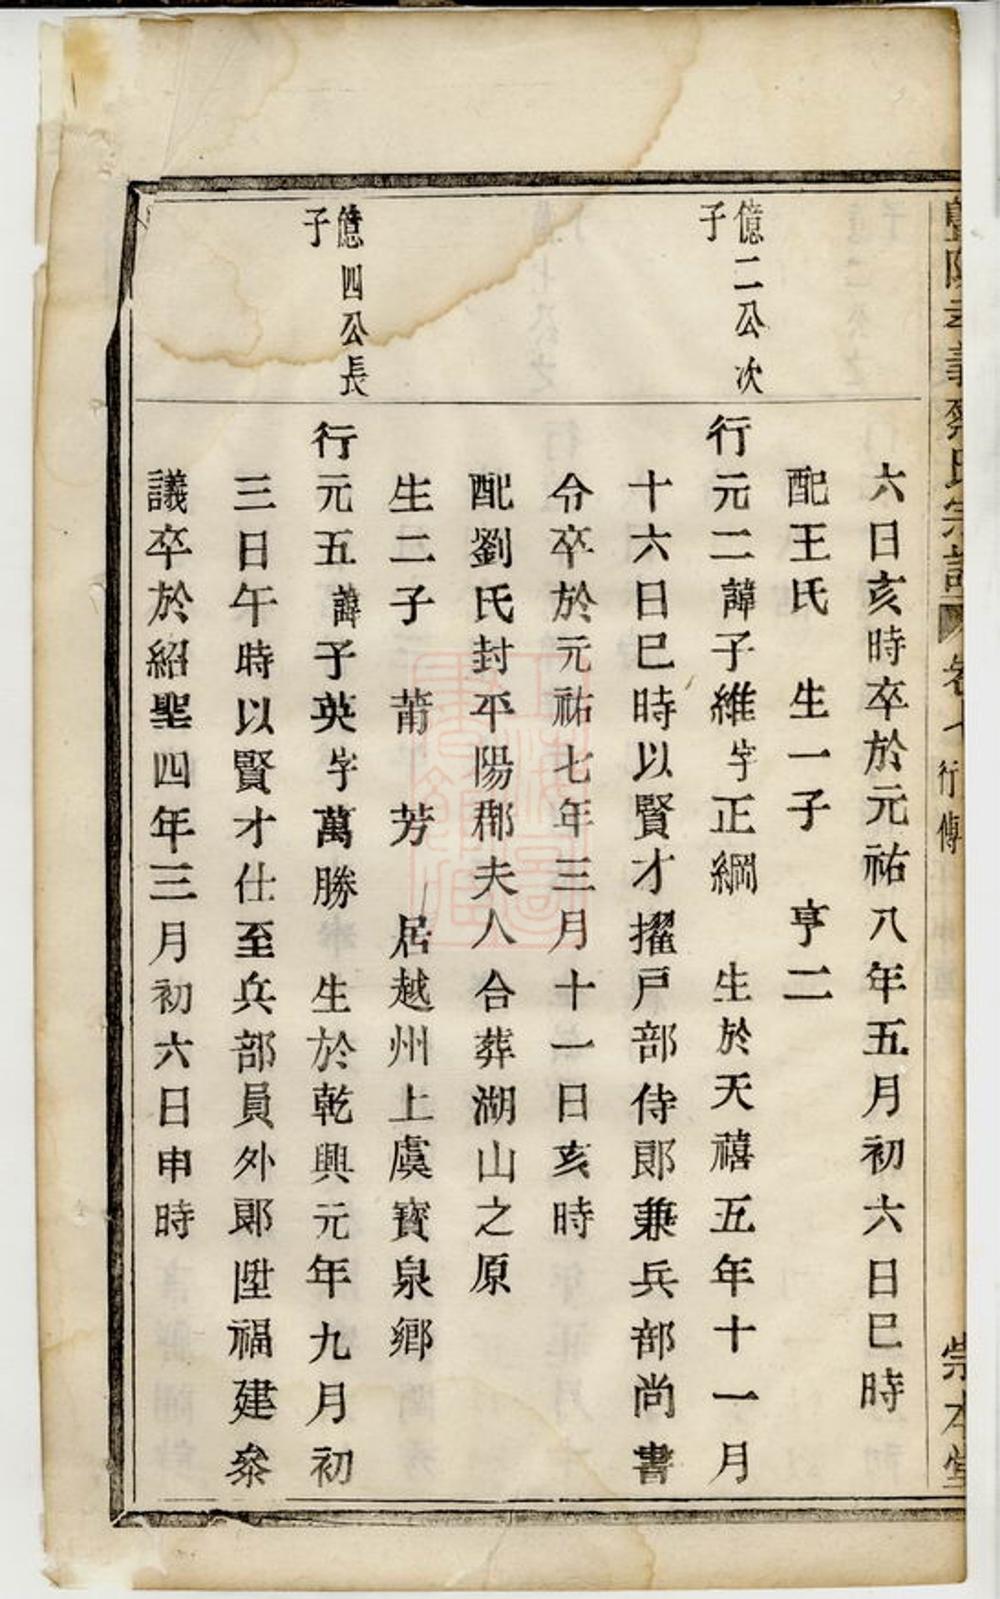 暨陽孝義蔡氏宗譜 卷七 行傳 崇本堂
六日亥時卒於元祐八年五月初六日巳時
配王氏 生一子 亨二
億二公次子
行元二諱子維字正綱 生於天禧五年十一月
十六日巳時以賢才擢戸部侍郎兼兵部尚書
令卒於元祐七年三月十一日亥時
配劉氏封平陽郡夫人合葬湖山之原
生二子 莆 芳 居越州上虞寳泉鄉
億四公長子
行元五諱子英字萬勝 生於乾興元年九月初
三日午時以賢才仕至兵部員外郎陞福建叅
議卒於紹聖四年三月初六日申時